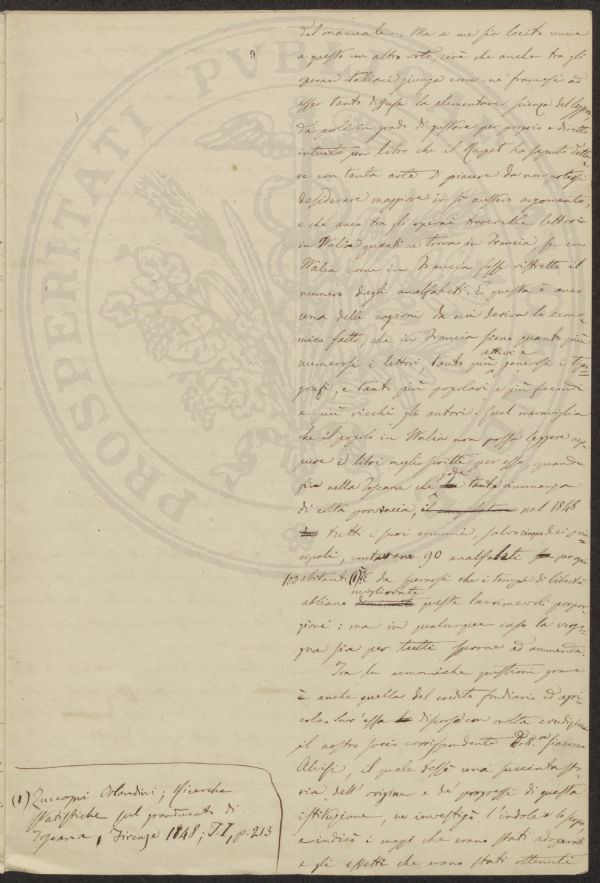 9
del manuale. Ma a me sia lecito unire
a questo un altro voto, cioè che anche tra gli
operai italiani giunga come ne' francesi ad
esser tanto diffusa la elementare scienza del legge
da poter in grado di gustare per proprio e diretto
intuito un libro che il Rapet ha saputo detta
re con tanta arte di piacere da non potersi
desiderare maggiore in sì austero argomento,
e che anco tra gli operai troverebbe lettori
in Italia quanti ne trova in Francia se in
Italia come in Francia fosse ristretto il
numero degli analfabeti. E questa è anco
una delle cagioni da cui deriva lo econo-
mico fatto, che in Francia siano quanto più
numerosi i lettori, tanto più attivi e generosi i tipo-
grafi, e tanto più popolari e più fecondi
e più ricchi gli autori. Qual meraviglia
che il popolo in Italia non possa leggere ep-
pure i libri meglio scritti per esso, quando
già nella Toscana che gode tanta rinomanza
di colta provincia, nel 1848
tutti i suoi comuni, salvo cinque dei prin-
cipali, contavano 90 analfabeti per ogni
100 abitanti (1). È da sperarsi che i tempi di libertà
abbiano migliorate queste lacrimevoli propor-
zioni: ma in qualunque caso la vergo-
gna sia per tutti sprone ad ammenda.
Tra le economiche questioni grave
è anche quella del credito fondiario ed agri-
colo. Sovr'essa discorse con molta erudizione
il nostro socio corrispondente Dott.re Giacomo
Alvisi, il quale dessè una succinta sto-
ria dell'origine e de' progressi di questa
istituzione, ne investigò l'indole e lo scopo,
e indicò i mezzi che erano stati adoperati
e gli effetti che erano stati ottenuti
(1) Zuccagni Orlandini; Ricerche
statistiche sul granducato di
Toscana, Firenze 1848; T.I, p. 213
PROSPERITATI PUBLICAE